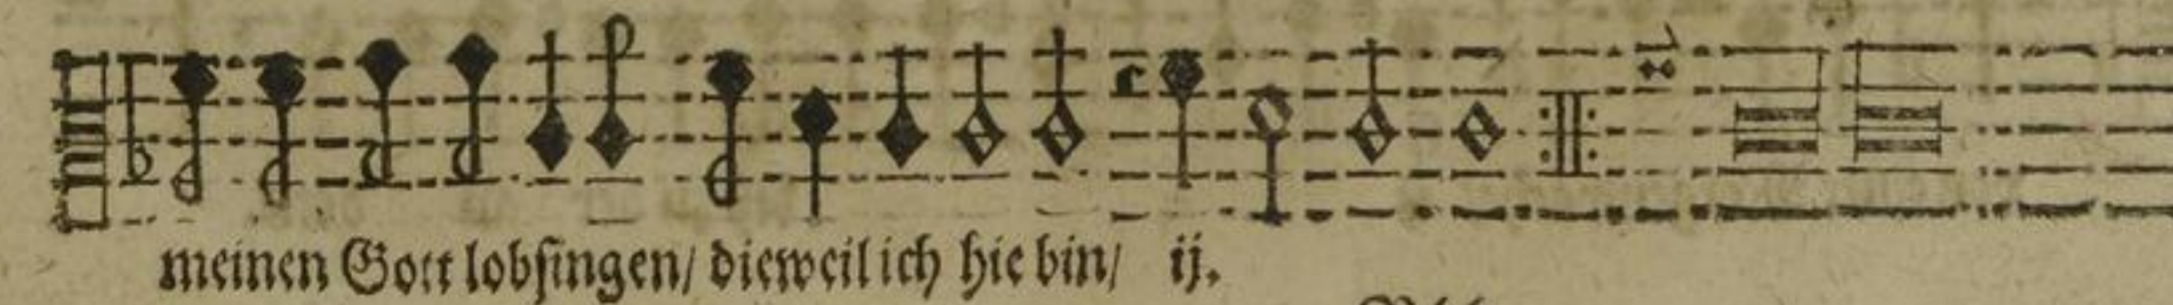 meinen Gott lobſingen/ dieweil ich hie bin/ ij.